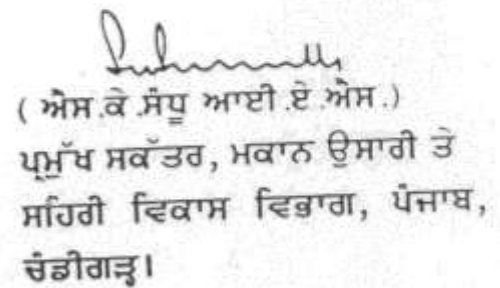 ( ਐਸ.ਕੇ.ਸੰਧੂ ਆਈ.ਏ.ਐਸ.)
ਪ੍ਰਮੁੱਖ ਸਕੱਤਰ, ਮਕਾਨ ਉਸਾਰੀ ਤੇ
ਸਹਿਰੀ ਵਿਕਾਸ ਵਿਭਾਗ, ਪੰਜਾਬ,
ਚੰਡੀਗੜ੍ਹ।